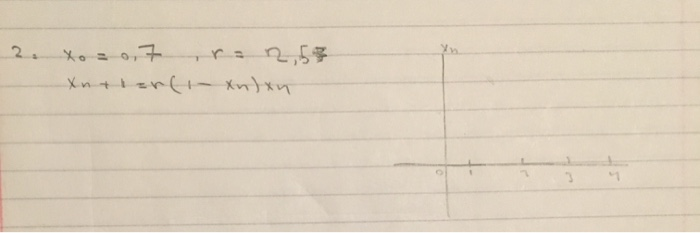 2. x₀ = 0,7 , r = 2,5
xn + 1 = r(1 - xn)xn
xn
0 1 2 3 4